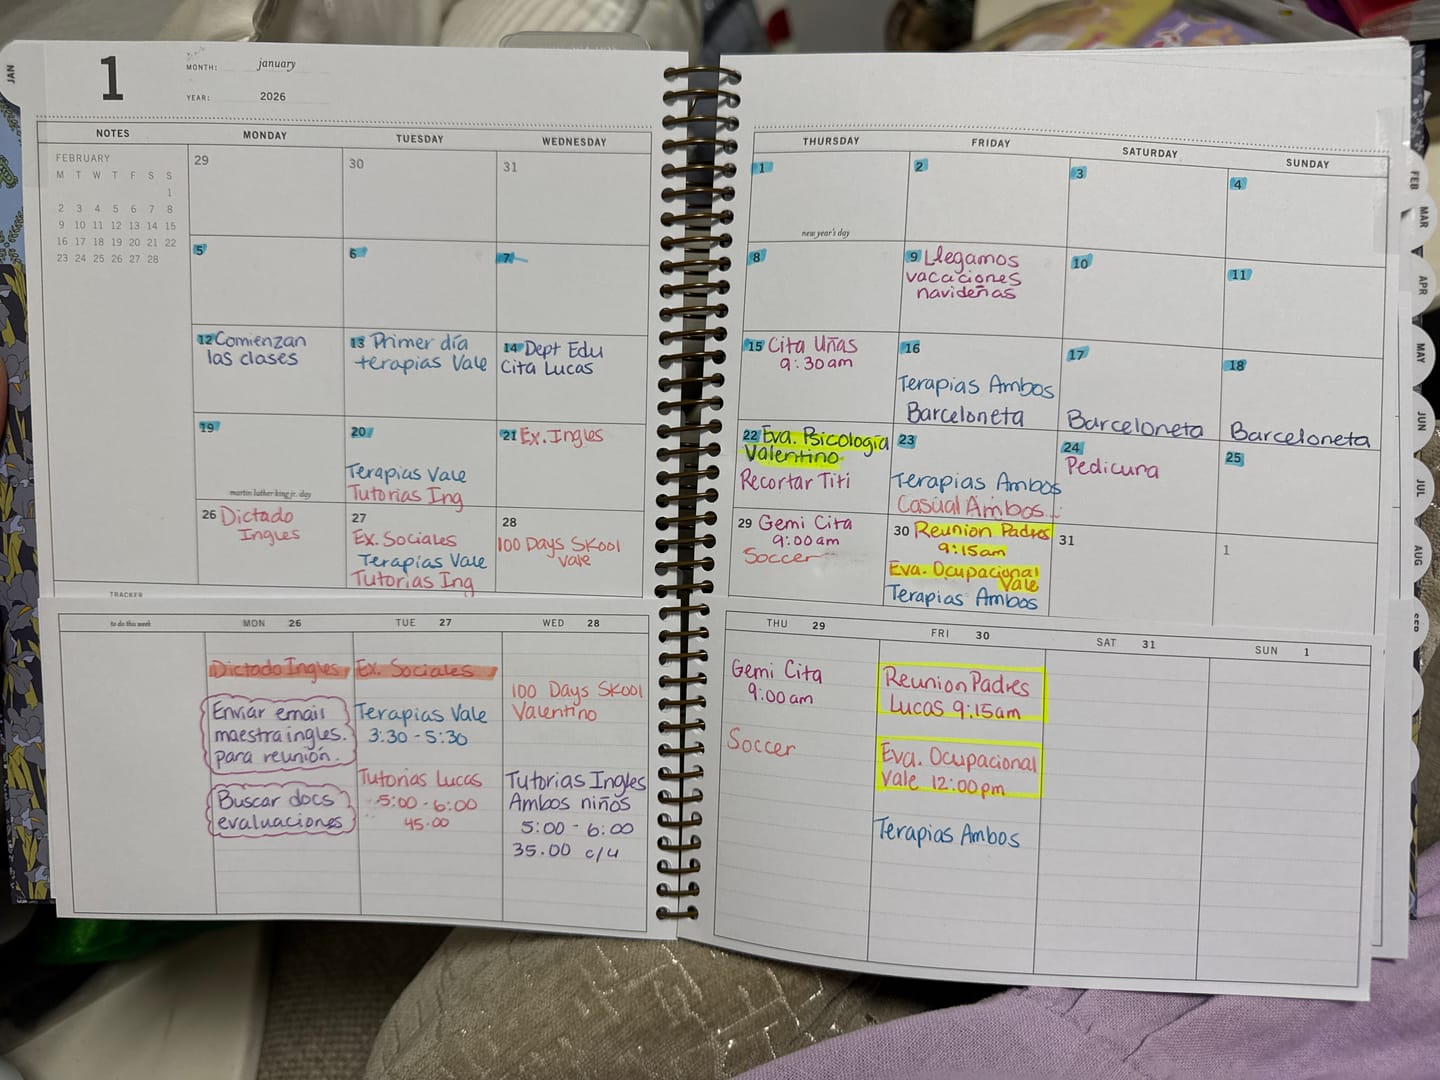 JAN
1
MONTH: january
YEAR: 2026
NOTES
MONDAY
TUESDAY
WEDNESDAY
THURSDAY
FRIDAY
SATURDAY
SUNDAY
FEBRUARY
M T W T F S S
1
2 3 4 5 6 7 8
9 10 11 12 13 14 15
16 17 18 19 20 21 22
23 24 25 26 27 28
29
30
31
1
new year's day
2
3
4
5
6
7
8
9 Llegamos
vacaciones
navideñas
10
11
12 Comienzan
las clases
13 Primer día
terapias Vale
14 Dept Edu
Cita Lucas
15 Cita Uñas
9:30am
16
Terapias Ambos
Barceloneta
17
Barceloneta
18
Barceloneta
19
martin luther king jr. day
20
Terapias Vale
Tutorias Ing
21 Ex. Ingles
22 Eva. Psicología
Valentino
Recortar Titi
23
Terapias Ambos
Casual Ambos
24
Pedicura
25
26 Dictado
Ingles
27
Ex. Sociales
Terapias Vale
Tutorias Ing
28
100 Days Skool
Vale
29 Gemi Cita
9:00am
Soccer
30 Reunion Padres
9:15am
Eva. Ocupacional
Vale
Terapias Ambos
31
1
TRACKER
to do this week
MON 26
TUE 27
WED 28
THU 29
FRI 30
SAT 31
SUN 1
Dictado Ingles
Enviar email
maestra ingles.
para reunión.
Buscar docs
evaluaciones
Ex. Sociales
Terapias Vale
3:30 - 5:30
Tutorias Lucas
5:00 - 6:00
45.00
100 Days Skool
Valentino
Tutorias Ingles
Ambos niños
5:00 - 6:00
35.00 c/u
Gemi Cita
9:00am
Soccer
Reunion Padres
Lucas 9:15am
Eva. Ocupacional
Vale 12:00pm
Terapias Ambos
FEB
MAR
APR
MAY
JUN
JUL
AUG
SEP